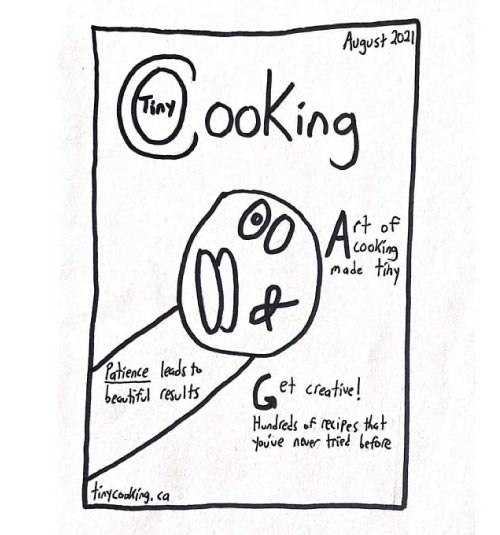 August 2021
Tiny
Cooking
Art of
cooking
made tiny
Patience leads to
beautiful results
Get creative!
Hundreds of recipes that
you've never tried before
tinycooking.ca